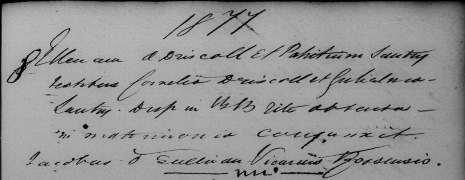 1877
8 Ellenam O Driscoll et Patritium Santry
Cornelio Driscoll et Gulielmo
Santry. Disp in B rite obtenta
in matrimonio conjunxit.
Jacobus O Sullivan Vicarius Rossensis.